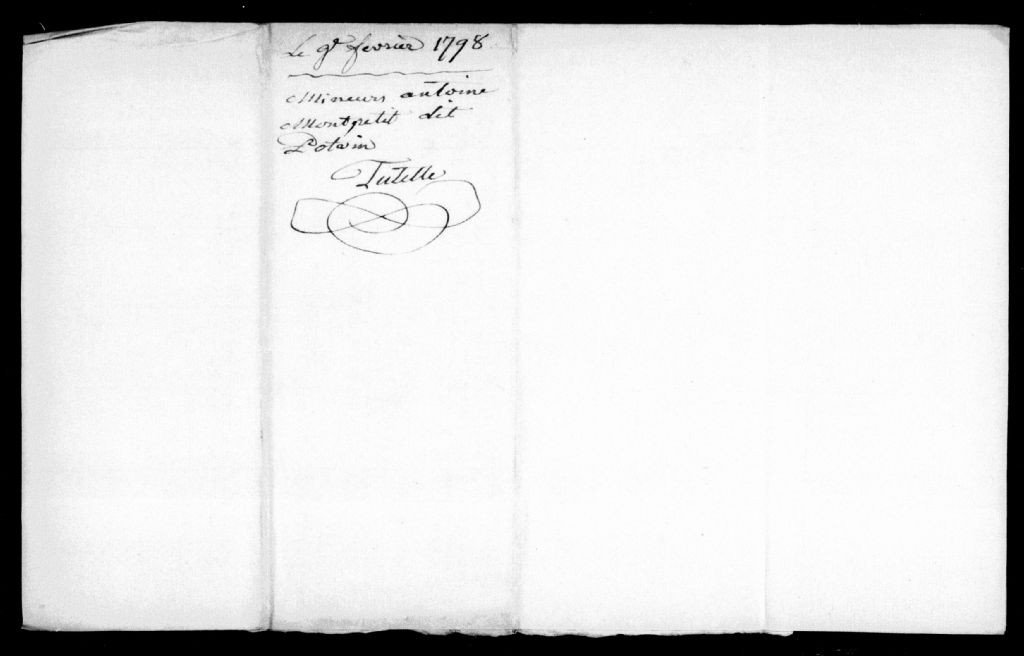 Le 9e fevrier 1798
Mineurs antoine
Montpetit dit
Potvin
Tutelle